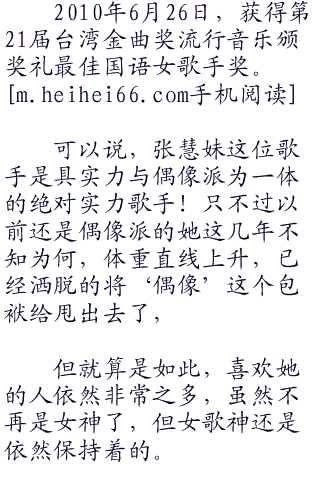 2010年6月26日，获得第
21届台湾金曲奖流行音乐颁
奖礼最佳国语女歌手奖。
[m.heihei66.com手机阅读]
可以说，张慧妹这位歌
手是具实力与偶像派为一体
的绝对实力歌手！只不过以
前还是偶像派的她这几年不
知为何，体重直线上升，已
经洒脱的将‘偶像’这个包
袱给甩出去了，
但就算是如此，喜欢她
的人依然非常之多，虽然不
再是女神了，但女歌神还是
依然保持着的。